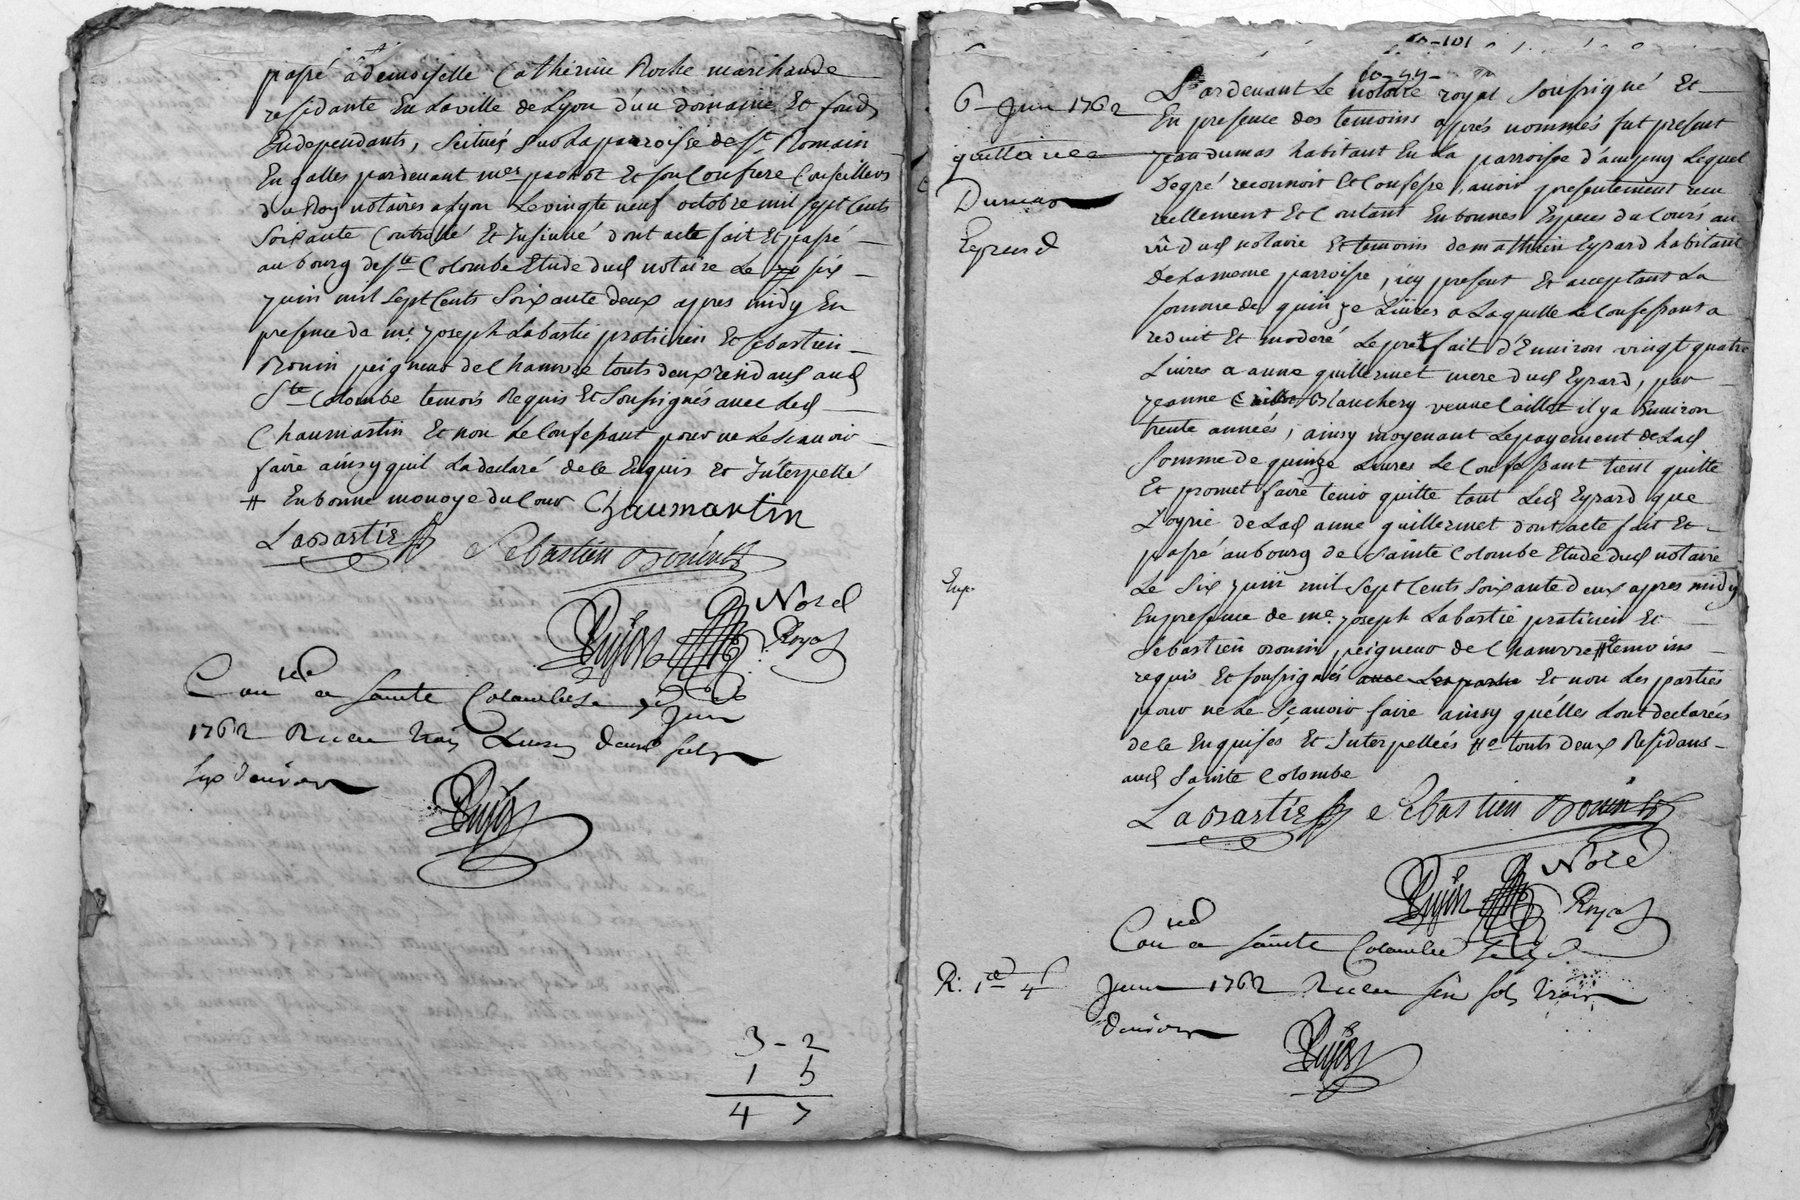 passé a demoiselle Catherine Roche marchande
residante En la ville de Lyon d'un domaine Et fonds
Endependants, scitués sur la parroisse de st Romain
En galles pardevant mes pachot Et son Confrere Conseillers
du Roy notaires a Lyon Le vingte neuf octobre mil sept Cents
soixante Controllé Et Insinué dont acte fait Et passé
au bourg de ste Colombe Etude dud notaire Le six
juin mil sept Cents soixante deux apres midy En
presence de me joseph Labastie praticien Et sebastien
Bonin peigneur de Chanvre touts deux residans aud
Ste Colombe temoins Requis Et soussignés avec led
Chaumartin Et non Le Confessant pour ne Le scavoir
faire ainsy quil La declaré de ce Enquis Et Interpellé
# En bonne monoye du Cour Chaumartin
Labastie Sebastien Bonin
Pujos Nore
Royal
Con lle a sainte Colombe Le juin
1762 Receu trois Livres deux sols
six deniers
Pujos
3 - 2
1 5
4 7
101
6 juin 1762
quittance
Dumas
Eyrard
Pardevant Le notaire royal soussigné Et
En presence des temoins aprés nommés fut present
jean dumas habitant En La parroisse d'ampuy Lequel
De gré reconnoit Et Confesse, avoir presentement receu
reellement Et Contant En bonnes Especes du Cours au
vû dud notaire Et temoins de mathieu Eyrard habitant
De La meme parroisse, icy present Et acceptant La
somme de quinze Livres a Laquelle Le Confessant a
reduit Et moderé Le pret fait d'Environ vingt quatre
Livres a anne guillermet mere dud Eyrard, par
jeanne Blanchery veuve Caillot il y a Environ
trente années; ainsy moyenant Le payement de Lad
somme de quinze Livres Le Confessant tient quitte
Et promet faire tenir quitte tant Led Eyrard que
L'oyrie de Lad anne guillermet dont acte fait Et
passé au bourg de sainte Colombe Etude dud notaire
Le six juin mil sept Cents soixante deux apres midy
En presence de me joseph Labastie praticien Et
Exp.
Sebastien Bonin peigneur de Chanvre # temoins
requis Et soussignés avec Les parties Et non Les parties
pour ne Le sçavoir faire ainsy quelles L'ont declarées
de ce Enquises Et Interpellées # touts deux Residans
aud Sainte Colombe
Labastie Sebastien Bonin
Pujos Nore
Royal
Con lle a sainte Colombe Le
R: 1 4
juin 1762 Receu six sols trois
deniers
Pujos